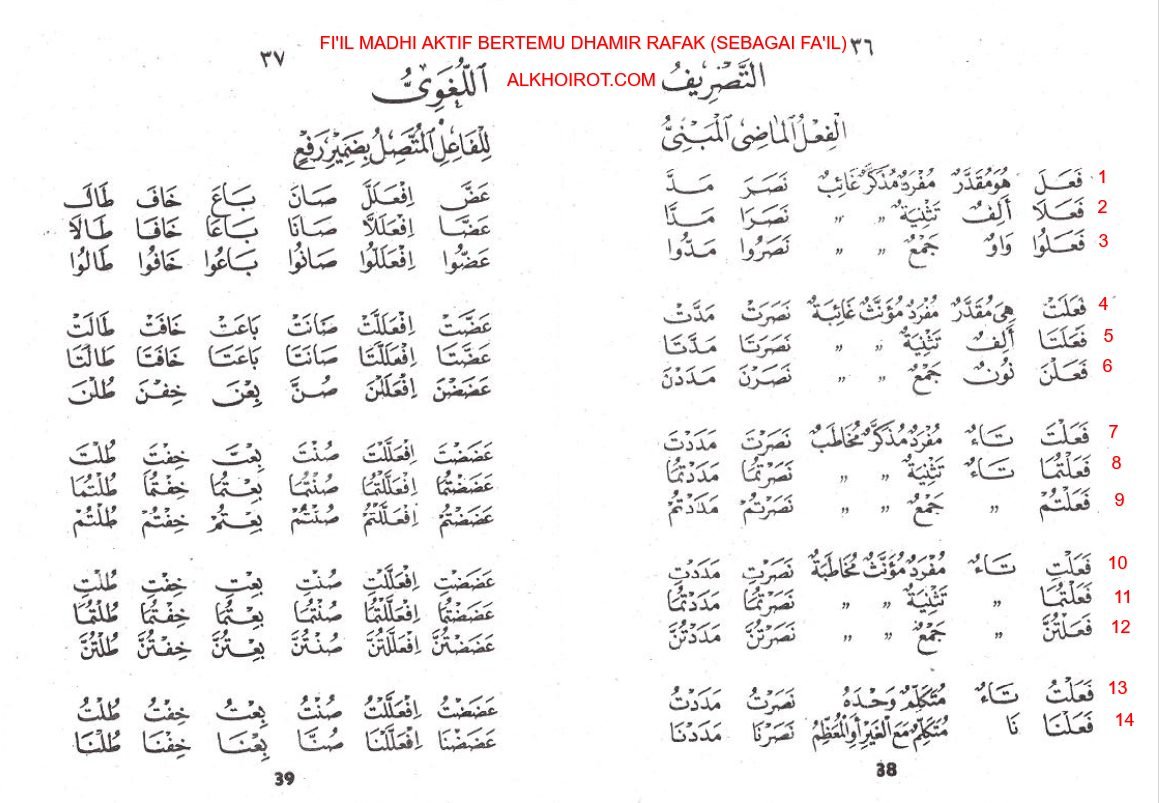 FI'IL MADHI AKTIF BERTEMU DHAMIR RAFAK (SEBAGAI FA'IL)
٣٦ ٣٧
ALKHOIROT.COM
التَّصْرِيفُ اللُّغَوِىُّ
الفِعْلُ المَاضِى المَبْنِىُّ لِلْفَاعِلِ المُتَّصِلُ بِضَمِيْرِ رَفْعٍ
1 فَعَلَ هُوَ مُقَدَّرٌ مُفْرَدٌ مُذَكَّرٌ غَائِبٌ نَصَرَ مَدَّ عَضَّ اِفْعَلَلَّ صَانَ بَاعَ خَافَ طَالَ
2 فَعَلَا أَلِفٌ تَثْنِيَةٌ " " نَصَرَا مَدَّا عَضَّا اِفْعَلَلَّا صَانَا بَاعَا خَافَا طَالَا
3 فَعَلُوا وَاوٌ جَمْعٌ " " نَصَرُوا مَدُّوا عَضُّوا اِفْعَلَلُّوا صَانُوا بَاعُوا خَافُوا طَالُوا
4 فَعَلَتْ هِىَ مُقَدَّرٌ مُفْرَدٌ مُؤَنَّثٌ غَائِبَةٌ نَصَرَتْ مَدَّتْ عَضَّتْ اِفْعَلَلَّتْ صَانَتْ بَاعَتْ خَافَتْ طَالَتْ
5 فَعَلَتَا أَلِفٌ تَثْنِيَةٌ " " نَصَرَتَا مَدَّتَا عَضَّتَا اِفْعَلَلَّتَا صَانَتَا بَاعَتَا خَافَتَا طَالَتَا
6 فَعَلْنَ نُونٌ جَمْعٌ " " نَصَرْنَ مَدَدْنَ عَضَضْنَ اِفْعَلَلْنَ صُنَّ بِعْنَ خِفْنَ طُلْنَ
7 فَعَلْتَ تَاءٌ مُفْرَدٌ مُذَكَّرٌ مُخَاطَبٌ نَصَرْتَ مَدَدْتَ عَضَضْتَ اِفْعَلَلْتَ صُنْتَ بِعْتَ خِفْتَ طُلْتَ
8 فَعَلْتُمَا تَاءٌ تَثْنِيَةٌ " " نَصَرْتُمَا مَدَدْتُمَا عَضَضْتُمَا اِفْعَلَلْتُمَا صُنْتُمَا بِعْتُمَا خِفْتُمَا طُلْتُمَا
9 فَعَلْتُمْ " جَمْعٌ " " نَصَرْتُمْ مَدَدْتُمْ عَضَضْتُمْ اِفْعَلَلْتُمْ صُنْتُمْ بِعْتُمْ خِفْتُمْ طُلْتُمْ
10 فَعَلْتِ تَاءٌ مُفْرَدٌ مُؤَنَّثٌ مُخَاطَبَةٌ نَصَرْتِ مَدَدْتِ عَضَضْتِ اِفْعَلَلْتِ صُنْتِ بِعْتِ خِفْتِ طُلْتِ
11 فَعَلْتُمَا " تَثْنِيَةٌ " " نَصَرْتُمَا مَدَدْتُمَا عَضَضْتُمَا اِفْعَلَلْتُمَا صُنْتُمَا بِعْتُمَا خِفْتُمَا طُلْتُمَا
12 فَعَلْتُنَّ " جَمْعٌ " " نَصَرْتُنَّ مَدَدْتُنَّ عَضَضْتُنَّ اِفْعَلَلْتُنَّ صُنْتُنَّ بِعْتُنَّ خِفْتُنَّ طُلْتُنَّ
13 فَعَلْتُ تَاءٌ مُتَكَلِّمٌ وَحْدَهُ نَصَرْتُ مَدَدْتُ عَضَضْتُ اِفْعَلَلْتُ صُنْتُ بِعْتُ خِفْتُ طُلْتُ
14 فَعَلْنَا نَا مُتَكَلِّمٌ مَعَ الْغَيْرِ أَوِ الْمُعَظِّمُ نَصَرْنَا مَدَدْنَا عَضَضْنَا اِفْعَلَلْنَا صُنَّا بِعْنَا خِفْنَا طُلْنَا
38 39